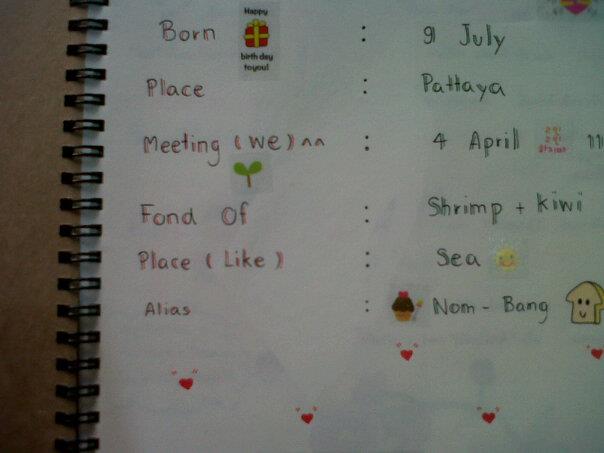 Happy
birth day
to you!
Born : 9 July
Place : Pattaya
Meeting (We) ^^ : 4 April
Fond Of : Shrimp + kiwi
Place (Like) : Sea
Alias : Nom - Bang